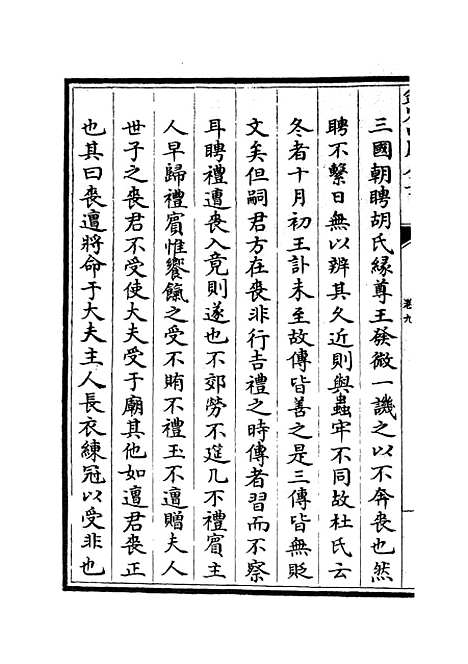 三國朝聘胡氏縁尊王發微一譏之以不奔喪也然
聘不繫日無以辨其久近則與蟲牢不同故杜氏云
冬者十月初王訃未至故傳皆善之是三傳皆無貶
文矣但嗣君方在喪非行吉禮之時傳者習而不察
耳聘禮遭喪入竟則遂也不郊勞不筵几不禮賓主
人畢歸禮賓惟饗餼之受不賄不禮玉不遭贈夫人
世子之喪君不受使大夫受于廟其他如遭君喪正
也其曰喪遭將命于大夫主人長衣練冠以受非也
卷九